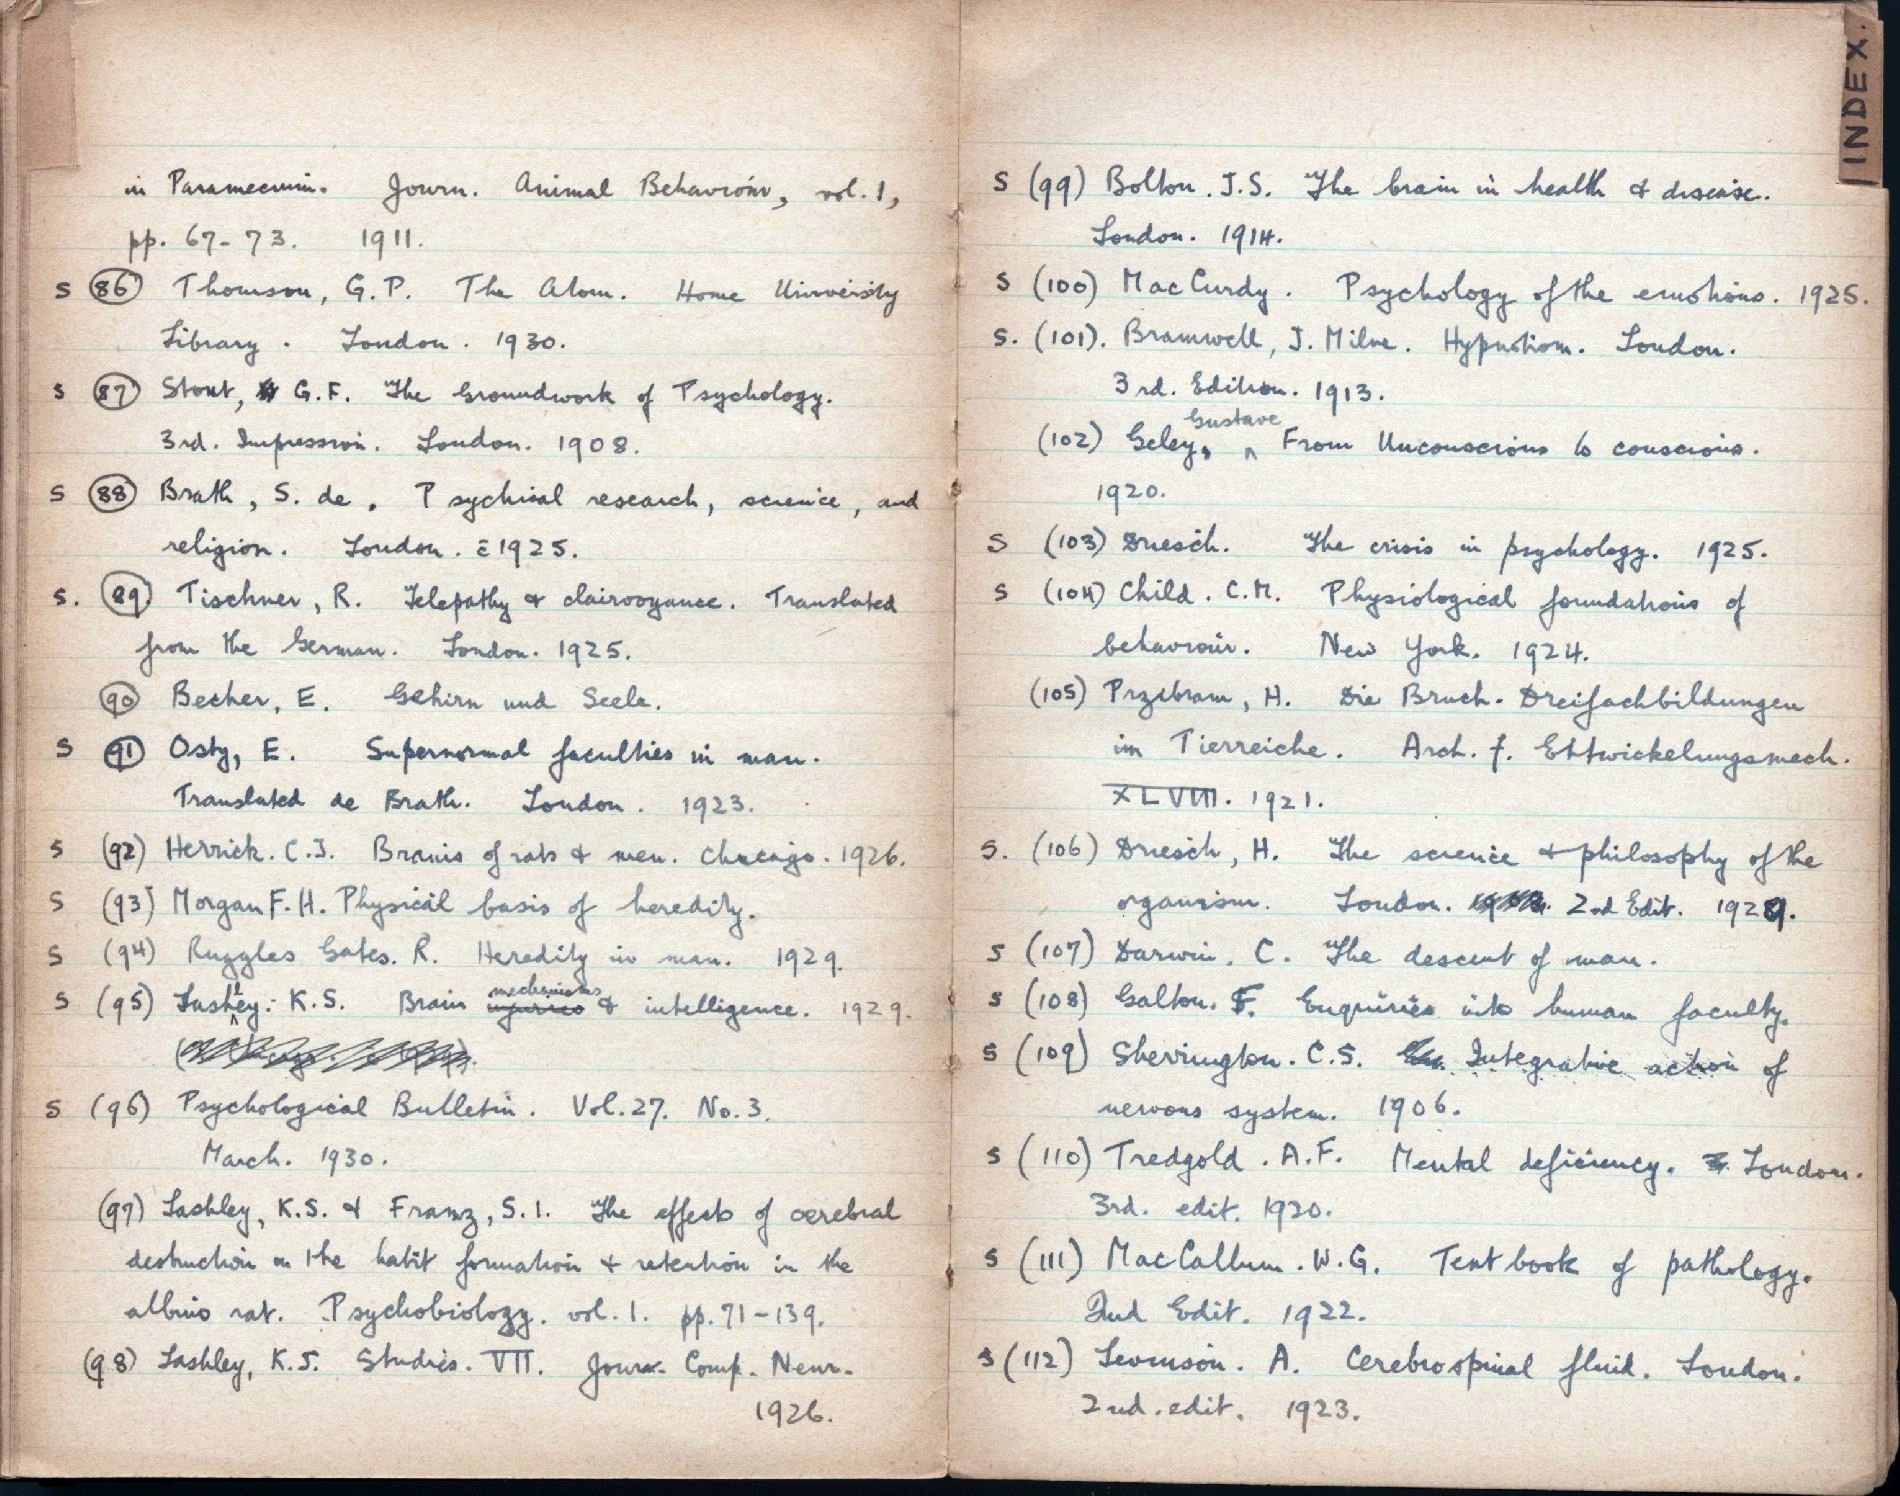 in Paramecium. Journ. Animal Behaviour, vol. 1,
pp. 67-73. 1911.
S (86) Thomson, G.P. The Atom. Home University
Library. London. 1930.
S (87) Stout, G.F. The Groundwork of Psychology.
3rd. Impression. London. 1908.
S (88) Brath, S. de. Psychical research, science, and
religion. London. 1925.
S. (89) Tischner, R. Telepathy & clairvoyance. Translated
from the German. London. 1925.
(90) Becher, E. Gehirn und Seele.
S (91) Osty, E. Supernormal faculties in man.
Translated de Brath. London. 1923.
S (92) Herrick. C.J. Brains of rats & men. Chicago. 1926.
S (93) Morgan F.H. Physical basis of heredity.
S (94) Ruggles Gates. R. Heredity in man. 1929.
S (95) Lashley: K.S. Brain mechanisms & intelligence. 1929.
S (96) Psychological Bulletin. Vol. 27. No. 3.
March. 1930.
(97) Lashley, K.S. & Franz, S.I. The effects of cerebral
destruction on the habit formation & retention in the
albino rat. Psychobiology. vol. 1. pp. 71-139.
(98) Lashley, K.S. Studies. VII. Journ. Comp. Neur.
1926.
INDEX.
S (99) Bolton. J.S. The brain in health & disease.
London. 1914.
S (100) MacCurdy. Psychology of the emotions. 1925.
S. (101). Bramwell, J. Milne. Hypnotism. London.
3rd. Edition. 1913.
(102) Geley, Gustave From Unconscious to conscious.
1920.
S (103) Driesch. The crisis in psychology. 1925.
S (104) Child. C.M. Physiological foundations of
behaviour. New York. 1924.
(105) Przibram, H. Die Bruch-Dreifachbildungen
im Tierreiche. Arch. f. Entwickelungsmech.
XLVIII. 1921.
S. (106) Driesch, H. The science & philosophy of the
organism. London. 2nd Edit. 1929.
S (107) Darwin. C. The descent of man.
S (108) Galton. F. Enquiries into human faculty.
S (109) Sherrington. C.S. Integrative action of
nervous system. 1906.
S (110) Tredgold. A.F. Mental deficiency. London.
3rd. edit. 1920.
S (111) MacCallum. W.G. Text book of pathology.
2nd Edit. 1922.
S (112) Levinson. A. Cerebrospinal fluid. London.
2nd. edit. 1923.